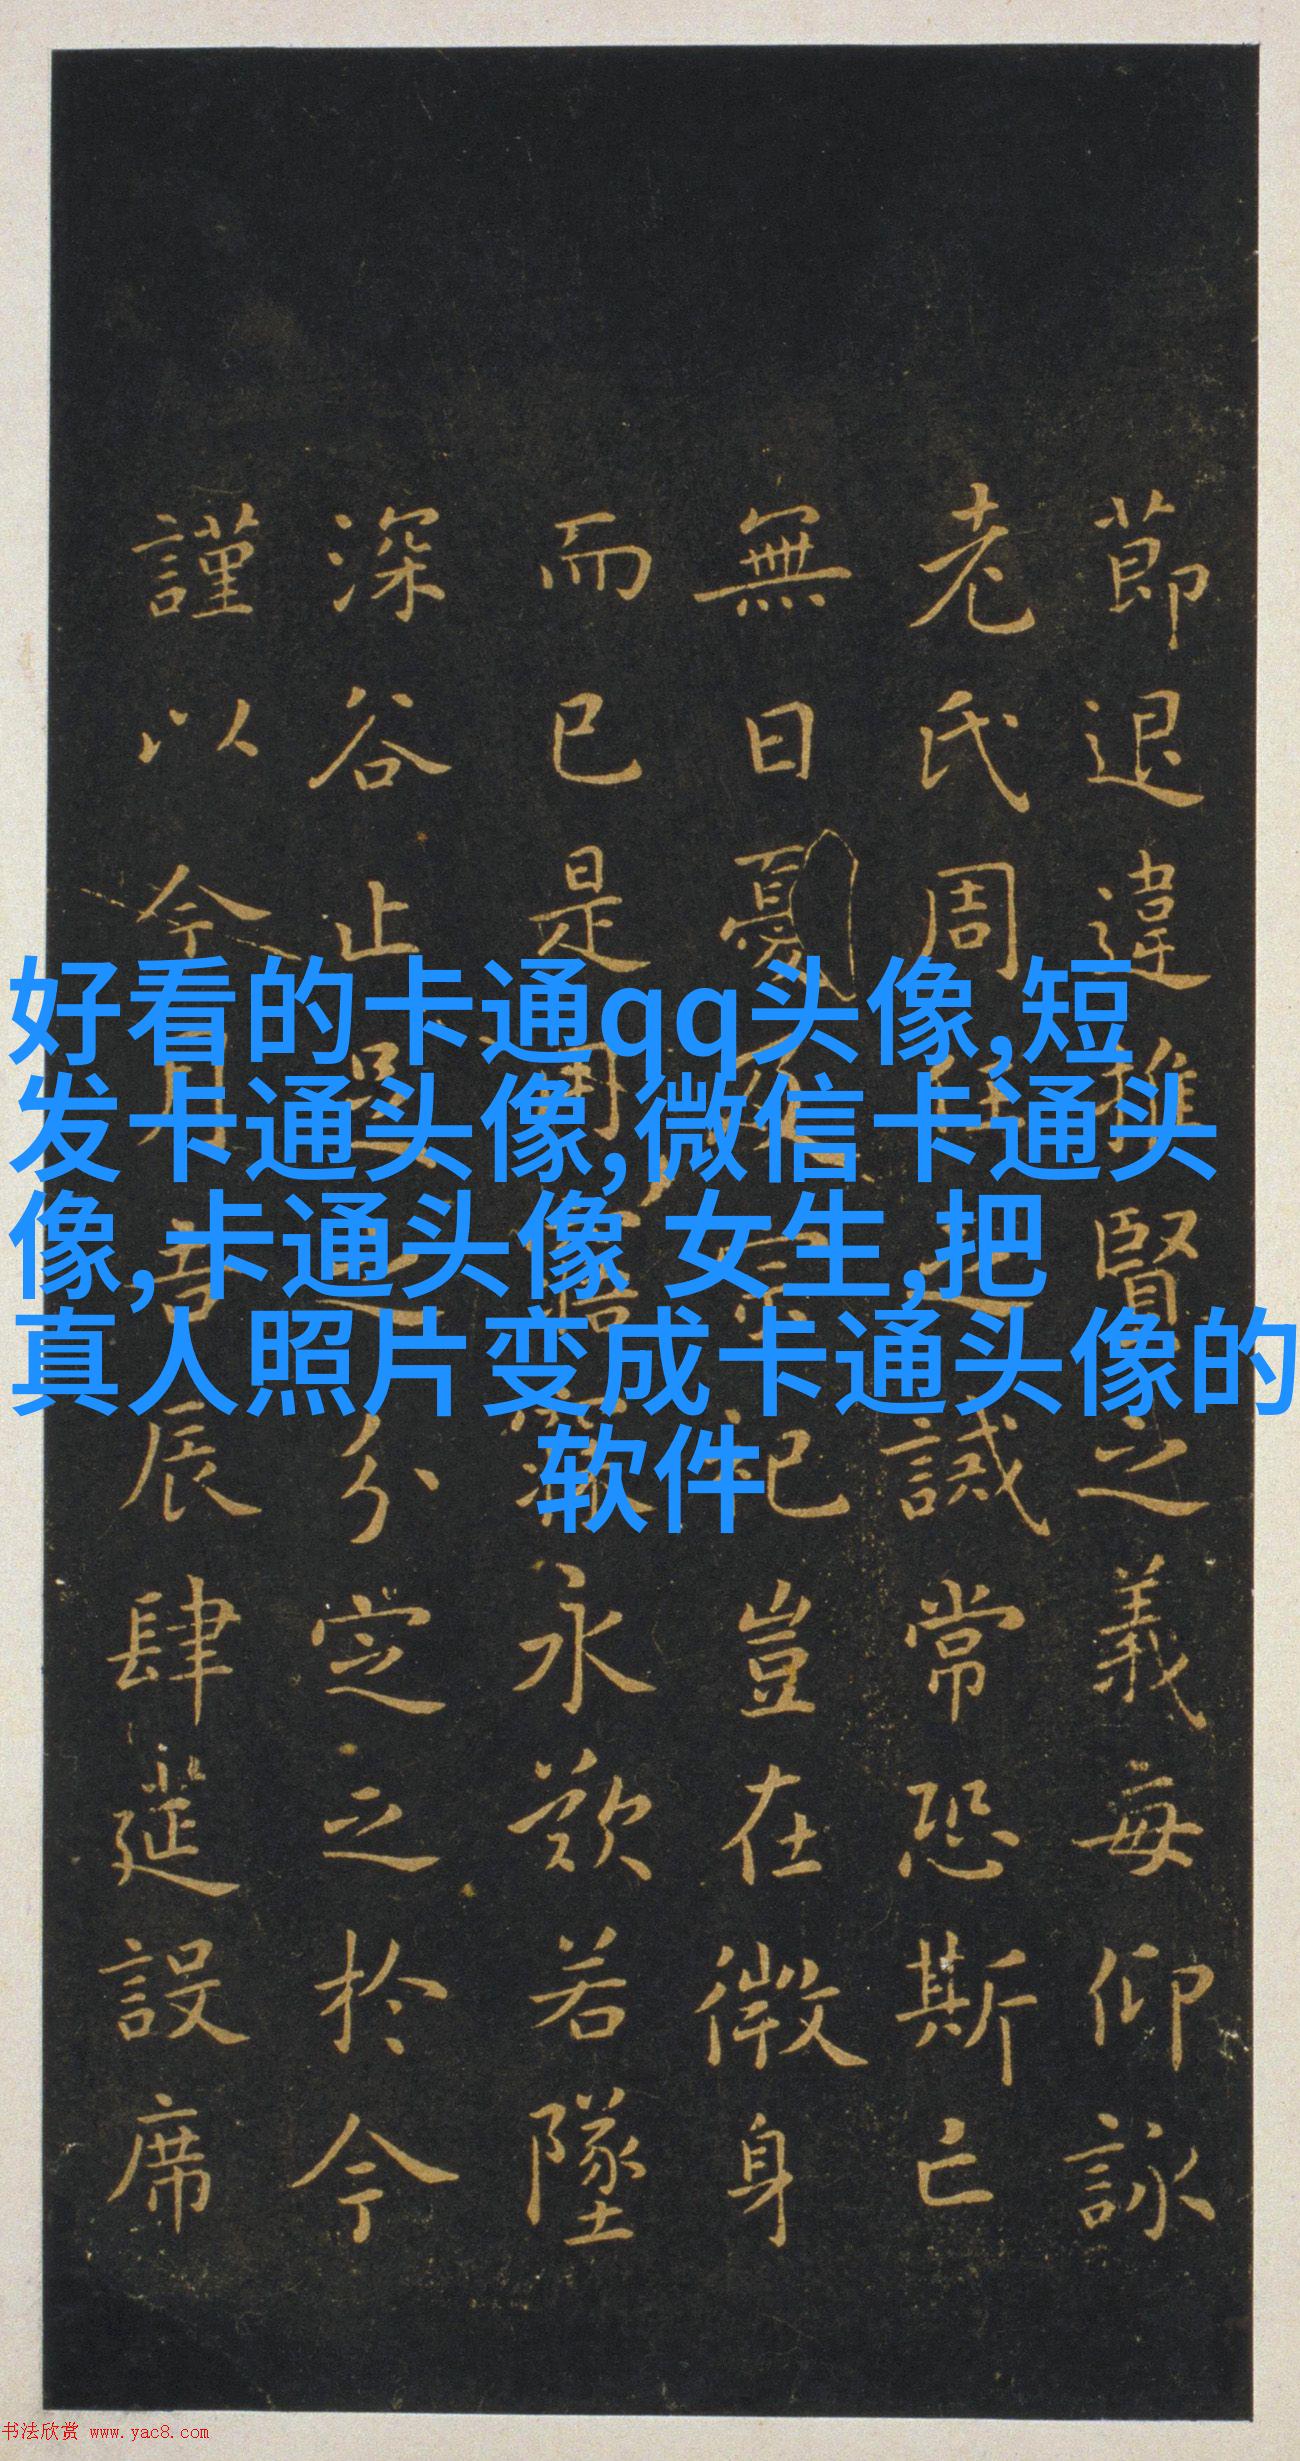 節退違推賢之義每仰詠
老氏周任之誡常恐斯亡
無日憂及宗祀豈在微身
而已是用寤寐永歎若墜
深谷止足之分定之於今
謹以今月吉辰肆筵設席
好看的卡通qq头像,短
发卡通头像,微信卡通头
像,卡通头像 女生,把
真人照片变成卡通头像的
软件
书法欣赏 www.yac8.com